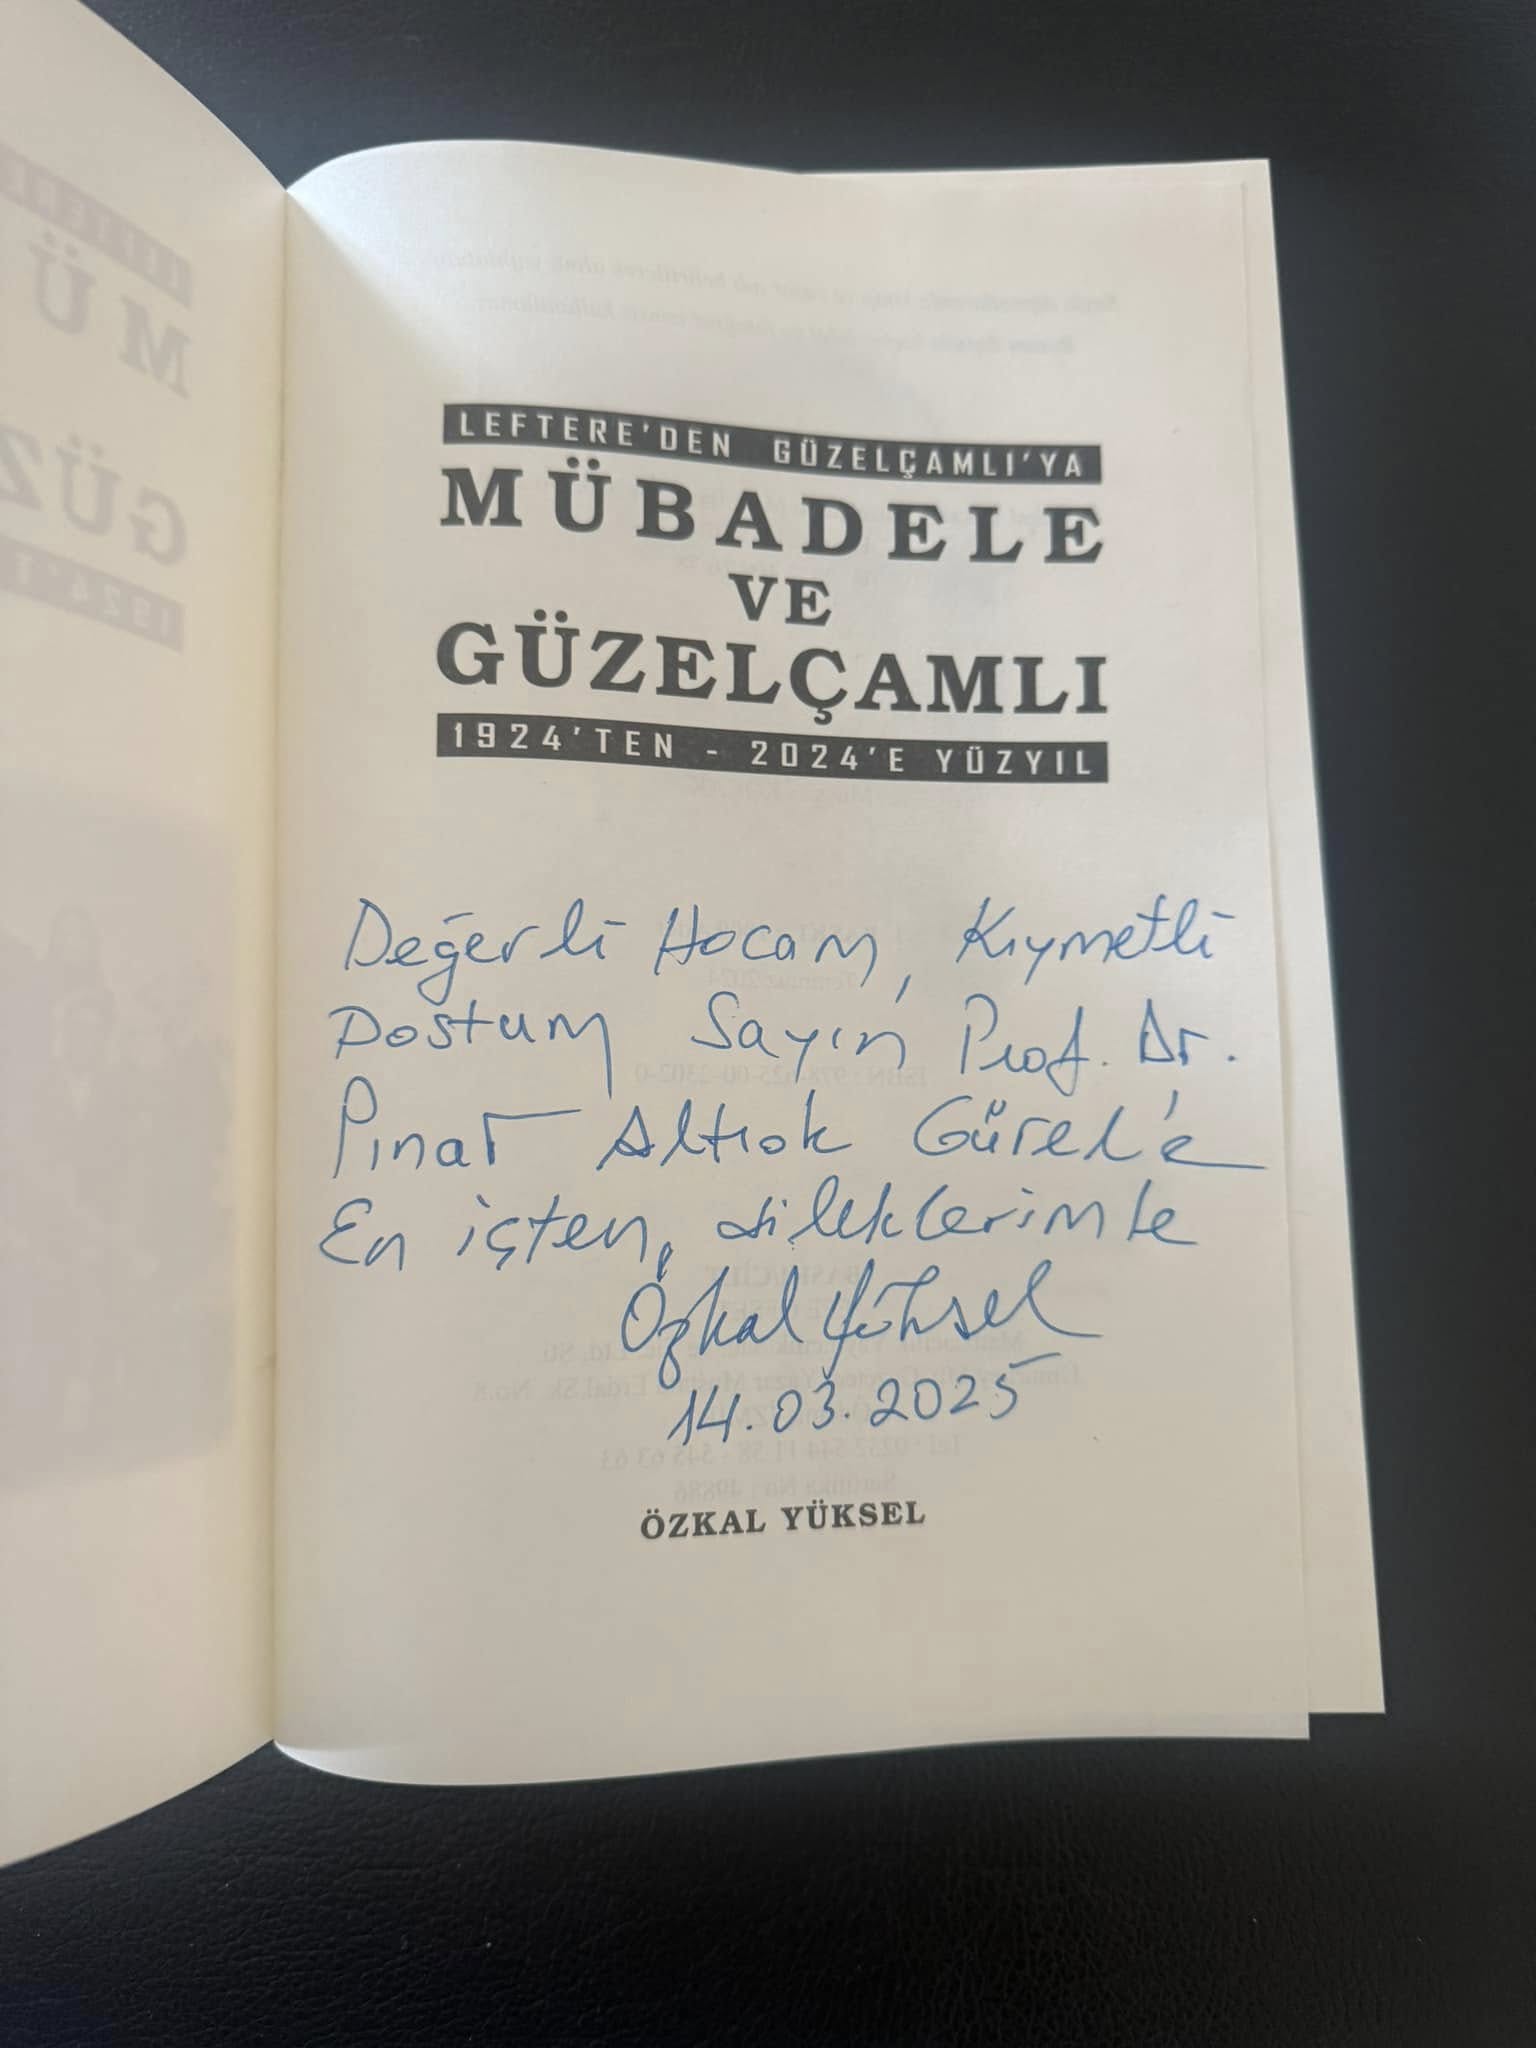 LEFTERE'DEN GÜZELÇAMLI'YA
MÜBADELE
VE
GÜZELÇAMLI
1924'TEN - 2024'E YÜZYIL
Değerli Hocam, Kıymetli
Dostum Sayın Prof. Dr.
Pınar Altıok Gürel'e
En içten, dileklerimle
Özkal Yüksel
14.03.2025
ÖZKAL YÜKSEL